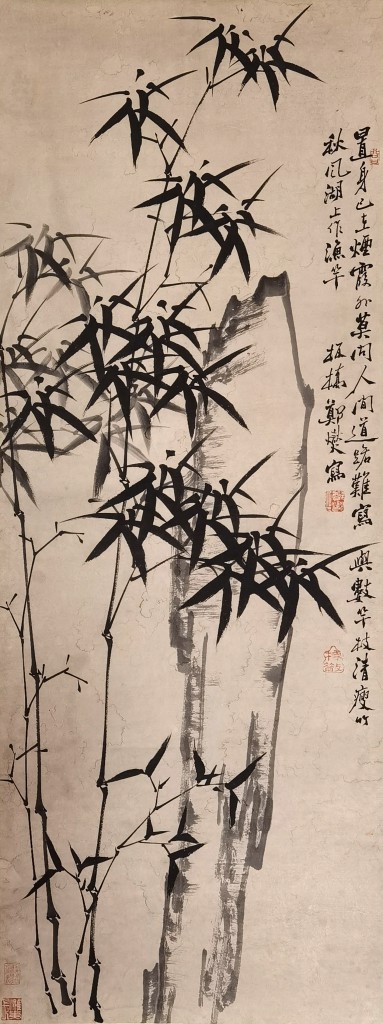 置身已在煙霞外莫問人間道路難寫與數竿枝清瘦竹
秋風湖上作漁竿 板橋鄭燮寫